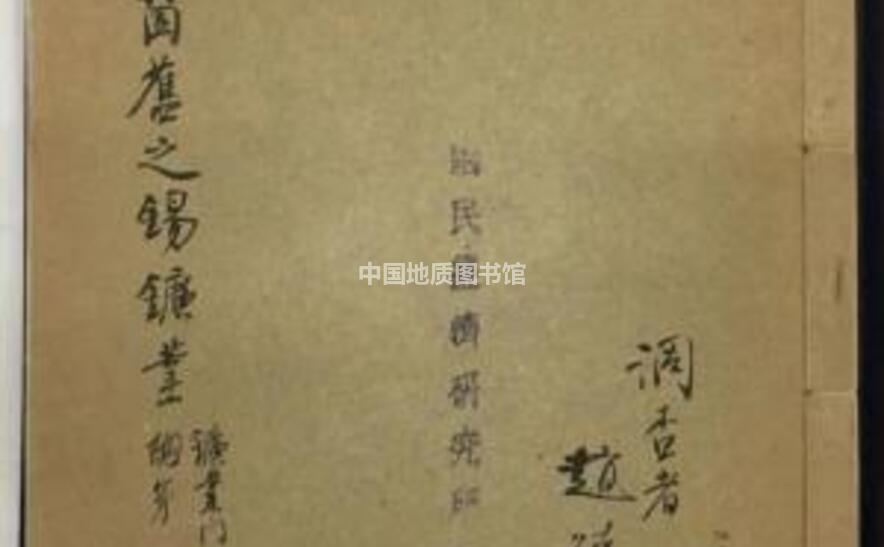 調查者
趙
國民經濟研究所
箇舊之錫鑛業
鑛業門
中国地质图书馆